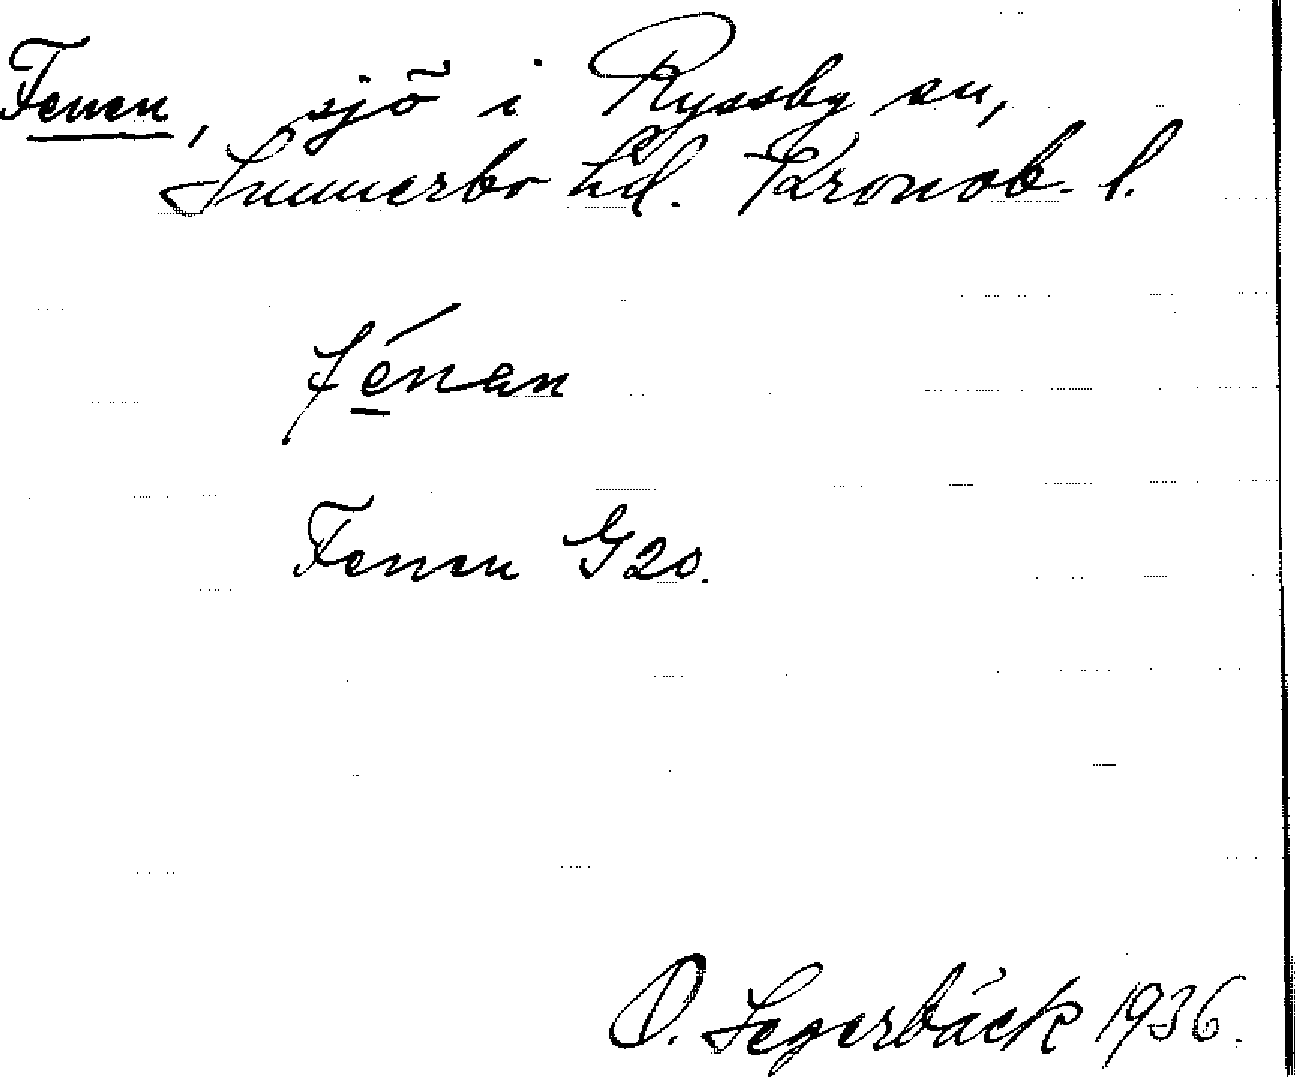 Fenen, sjö i Ryssby sn,
Sunnerbo hd. Kronob. l.
fénan
Fenen G20.
O. Segerbäck 1936.